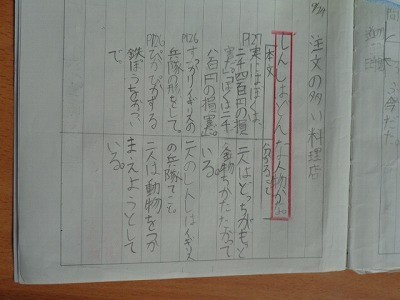 9/24
注文の多い料理店
しんしはどんな人物か。
本文
分かること
P127
実にぼくは、
二千四百円の損
害だ。ぼくは二千
八百円の損害。
二人はどっちがもっと
金持ちかたたかって
いる。
P126
すっかりイギリスの
兵隊の形をして。
二人のしんしはイギリス
の兵隊
P126
ぴかぴかする
鉄ぽうをかつい
で
二人は動物をつか
まえようとして
いる。